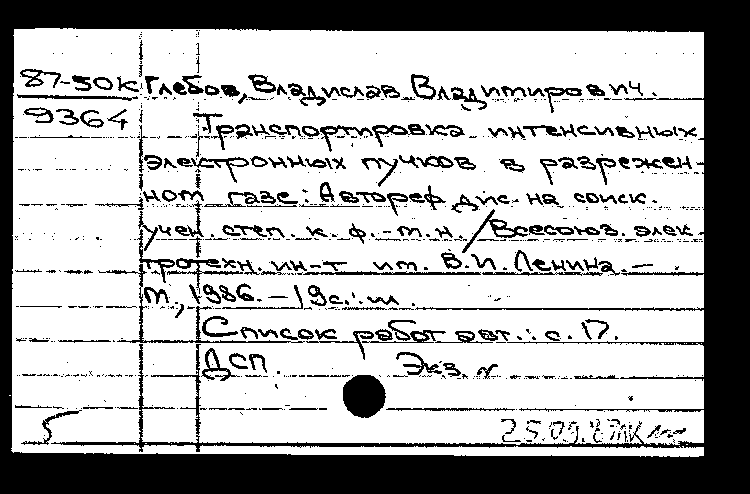 87-50К Глебов, Владислав Владимирович.
9364 Транспортировка интенсивных
электронных пучков в разрежен-
ном газе: Автореф. дис. на соиск.
учен. степ. к. ф.-м.н. / Всесоюз. элек-
тротехн. ин-т им. В.И. Ленина. –
М., 1986. – 19с.: ил.
Список работ авт.: с. 17.
ДСП. Экз. №
5 25.09.87